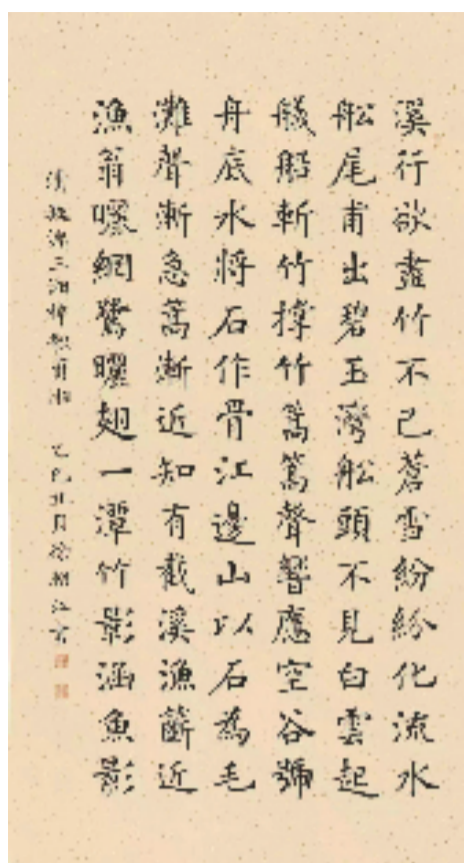 溪行欲盡竹不已蒼雪紛紛化流水
舩尾甫出碧玉灣舩頭不見白雲起
艤船斬竹撐竹篙篙聲響應空谷號
舟底水將石作骨江邊山以石為毛
灘聲漸急篙漸近知有截溪漁簖近
漁翁曬網鷺曬翅一潭竹影涵魚影